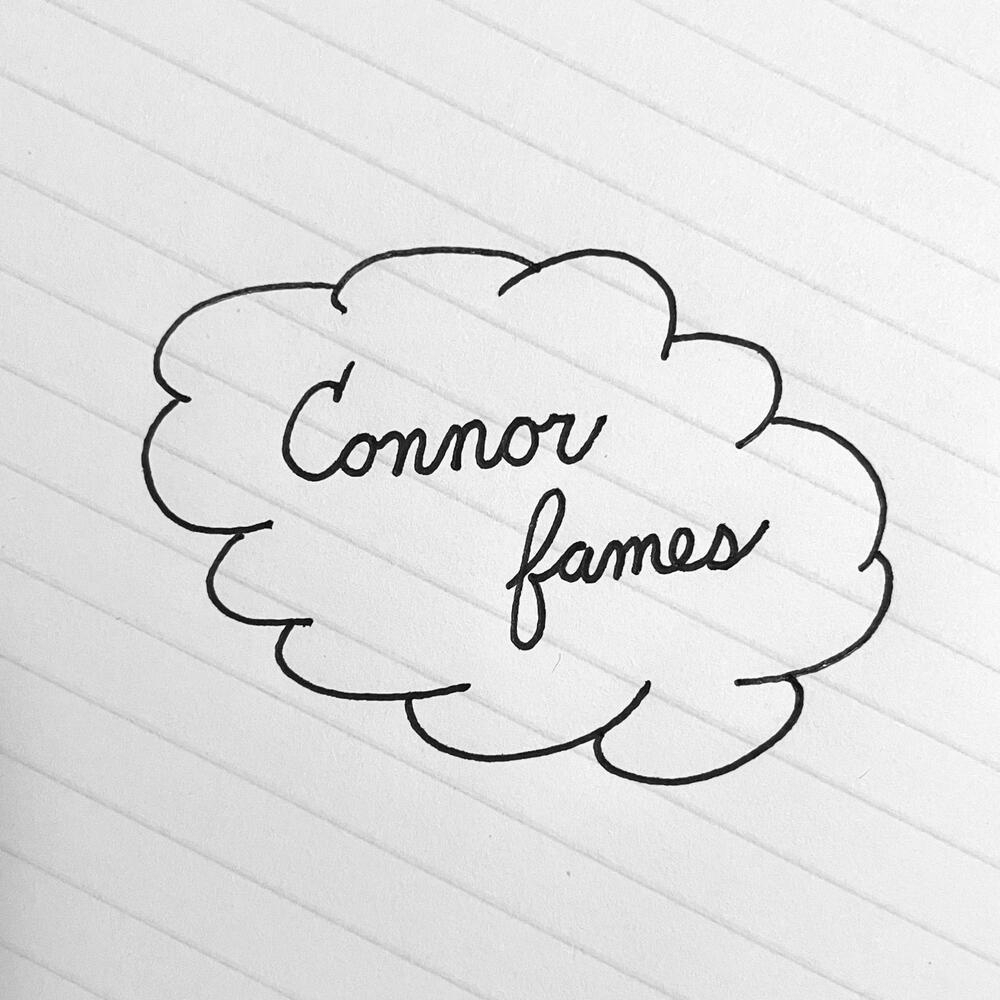 Connor
fames